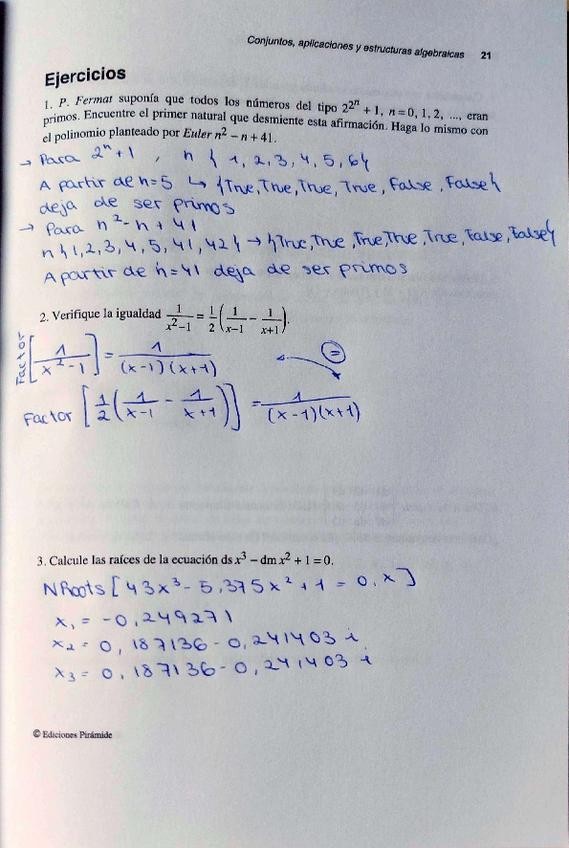 Conjuntos, aplicaciones y estructuras algebraicas 21
Ejercicios
1. P. Fermat suponía que todos los números del tipo 2^2^n + 1, n = 0, 1, 2, ..., eran
primos. Encuentre el primer natural que desmiente esta afirmación. Haga lo mismo con
el polinomio planteado por Euler n² − n + 41.
→ Para 2^n + 1 , n { 1, 2, 3, 4, 5, 6 {
A partir de n=5 ↳ {True, True, True, True, False, False{
deja de ser primos
→ Para n² - n + 41
n{1,2,3,4,5,41,42{ → {True, True, True, True, True, False, False{
A partir de n=41 deja de ser primos
2. Verifique la igualdad 1/(x²−1) = 1/2 (1/(x−1) − 1/(x+1)).
Factor [1/(x²-1)] = 1/((x-1)(x+1)) =
Factor [1/2 (1/(x-1) - 1/(x+1))] = 1/((x-1)(x+1))
3. Calcule las raíces de la ecuación ds x³ − dm x² + 1 = 0.
NRoots [43x³ - 5,375x² + 1 = 0, x]
x₁ = -0,249271
x₂ = 0,187136 - 0,241403 i
x₃ = 0,187136 - 0,241403 i
© Ediciones Pirámide